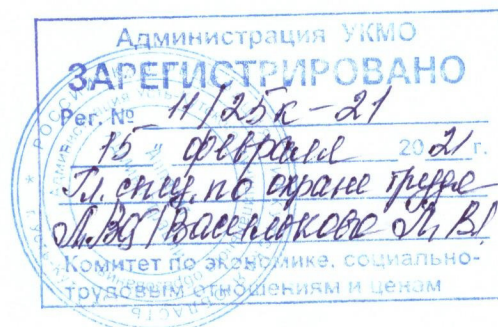 Администрация УКМО
ЗАРЕГИСТРИРОВАНО
Рег. № 11/25к-21
15 февраля 2021 г.
Гл. спец. по охране труда
/Василькова
Комитет по экономике, социально-
трудовым отношениям и ценам